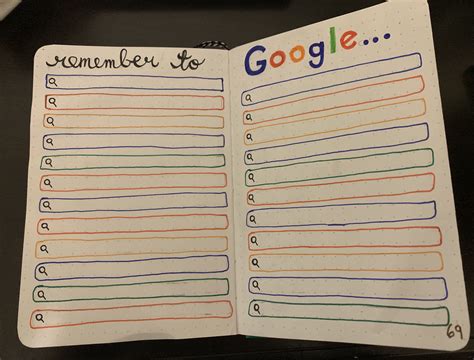 remember to
Google...
69